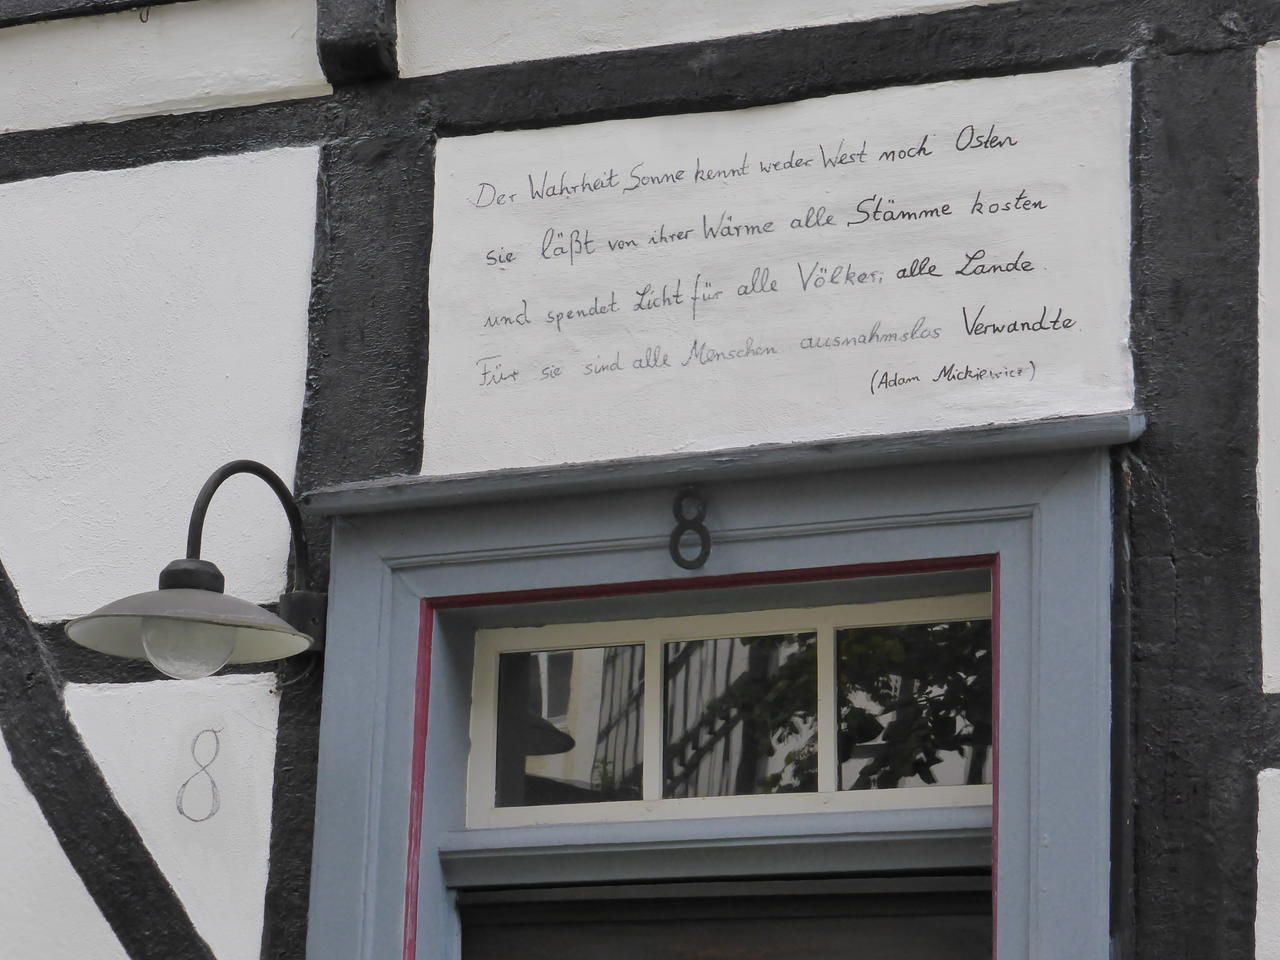 Der Wahrheit Sonne kennt weder West noch Osten
sie läßt von ihrer Wärme alle Stämme kosten
und spendet Licht für alle Völker, alle Lande.
Für sie sind alle Menschen ausnahmslos Verwandte.
(Adam Mickiewicz)
8
8